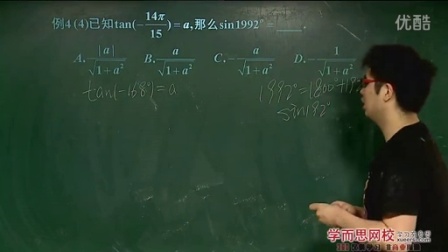 优酷
例4 (4)已知tan(-14π/15)=a,那么sin1992°=____.
A. |a|/√1+a² B. a/√1+a² C. -a/√1+a² D. -1/√1+a²
tan(-168°)=a
1992°=1800°+192°
sin192°
学而思网校